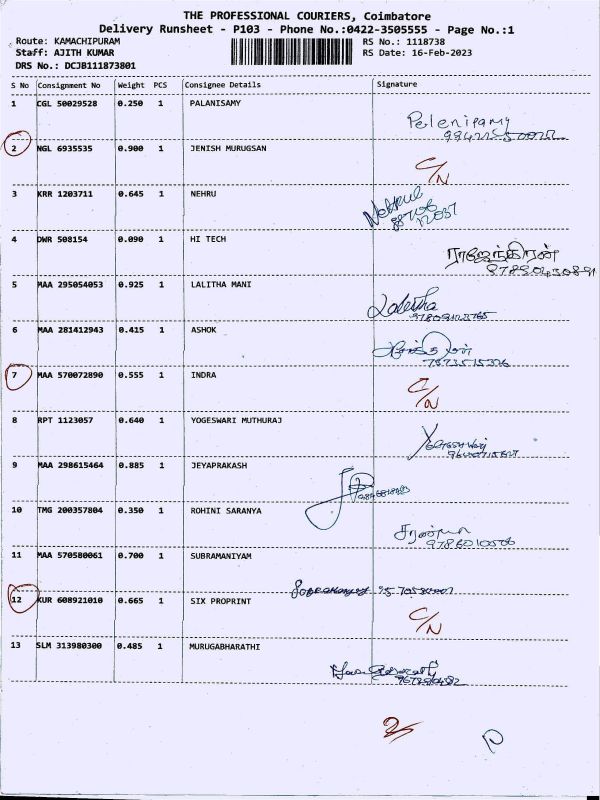 THE PROFESSIONAL COURIERS, Coimbatore
Delivery Runsheet - P103 - Phone No.:0422-3505555 - Page No.:1
Route: KAMACHIPURAM RS No.: 1118738
Staff: AJITH KUMAR RS Date: 16-Feb-2023
DRS No.: DCJB111873801
S No Consignment No Weight PCS Consignee Details Signature
1 CGL 50029528 0.250 1 PALANISAMY
Pelenipamy
2 NGL 6935535 0.900 1 JENISH MURUGSAN
C/N
3 KRR 1203711 0.645 1 NEHRU
4 DWR 508154 0.090 1 HI TECH
ராஜேந்திரன்
5 MAA 295054053 0.925 1 LALITHA MANI
Lalitha
6 MAA 281412943 0.415 1 ASHOK
7 MAA 570072890 0.555 1 INDRA
C/N
8 RPT 1123057 0.640 1 YOGESWARI MUTHURAJ
9 MAA 298615464 0.885 1 JEYAPRAKASH
10 TMG 200357804 0.350 1 ROHINI SARANYA
சரண்யா
9786010506
11 MAA 570580061 0.700 1 SUBRAMANIYAM
12 KUR 608921010 0.665 1 SIX PROPRINT
C/N
13 SLM 313980300 0.485 1 MURUGABHARATHI